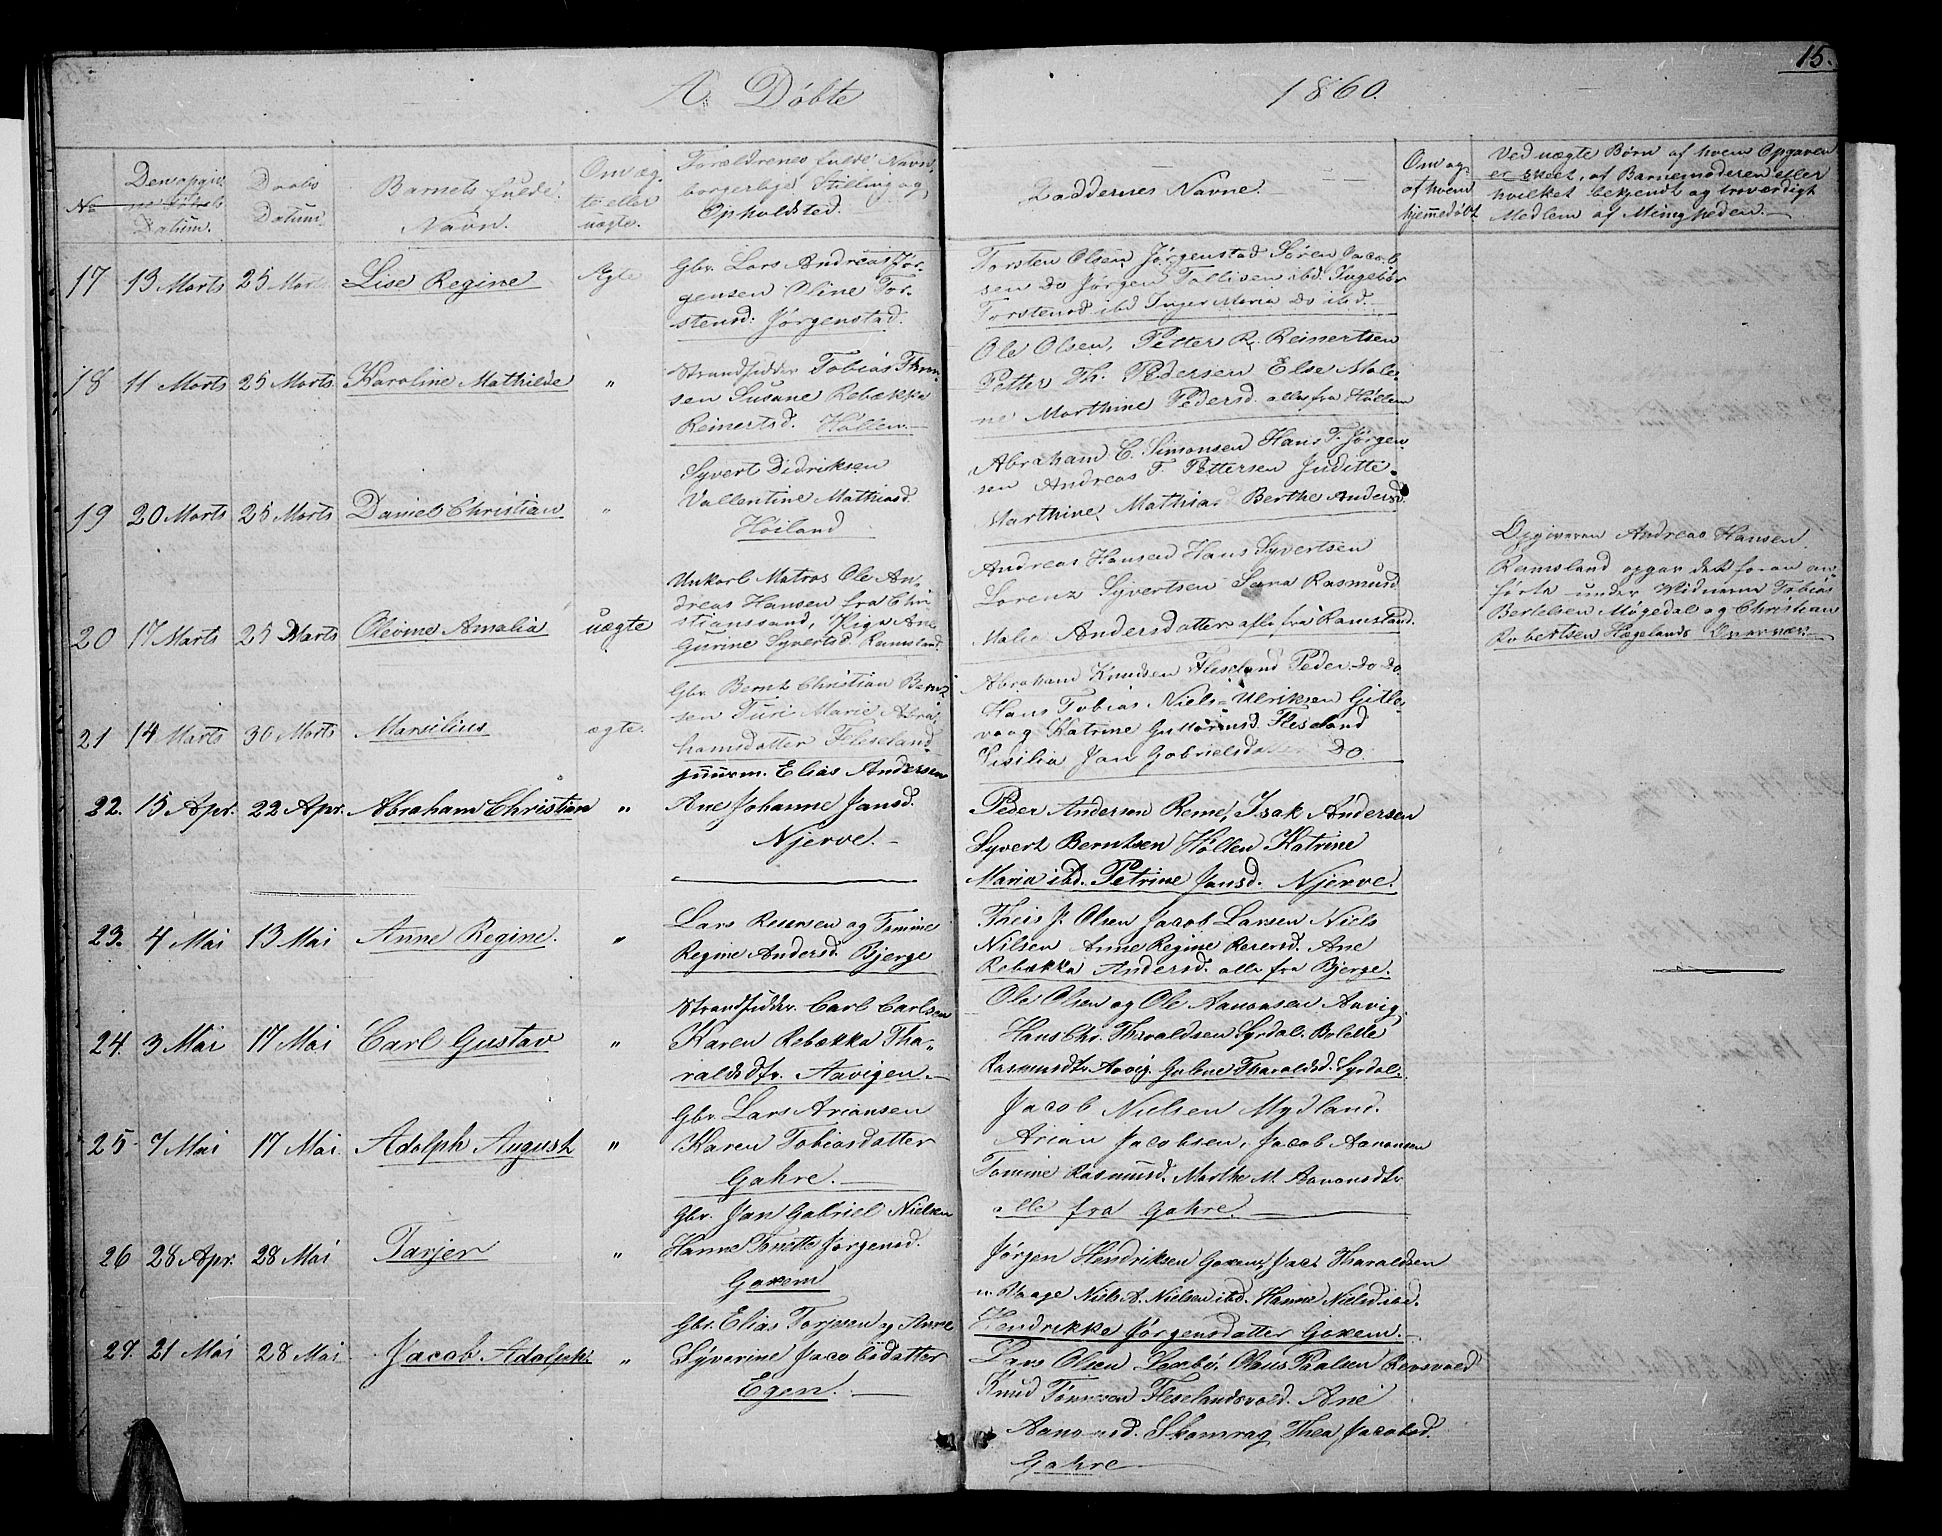 15.
A. Döbte
1860.
No
Den opgiv-
ne Födsels
Datum.
Daabs
Datum.
Barnets fulde
Navn.
Om æg-
te eller
uægte.
Forældrenes fulde Navn,
borgerlige Stilling og
Opholdsted.
Faddernes Navne.
Om og
af hvem
hjemmedöbt.
Ved uægte Børn af hvem Opgaven
er skeet, af Barnemoderen eller
hvilket bekjendt og troværdigt
Medlem af Menigheden.
17 13 Marts 25 Marts Lise Regine Ægte
Gbr. Lars Andreas Jør-
gensen Oline Tor-
stensd: Jørgenstad.
Torsten Olsen Jørgenstad Sören Jacob
sen do Jörgen Tollisen ibd. Ingebör
Torstensd ibd Inger Maria do ibd.
18 11 Marts 25 Marts Karoline Mathilde "
Strandsidder Tobias Thom-
sen Susane Rebækka
Reinertsd. Höllen.
Ole Olsen, Petter R. Reinertsen
Petter Th. Pedersen Else Male-
ne Marthine Pedersd. alle fra Höllem
19 20 Marts 25 Marts Daniel Christian "
Syvert Didriksen
Vallentine Mathiasd.
Höiland
Abraham C. Simonsen Hans T. Jörgen
sen Andreas T. Pettersen Juditte
Marthine Mathiasd Berthe Andersd.
20 17 Marts 25 Marts Olevine Amalia uægte
Unkarl Matros Ole An-
dreas Hansen fra Chri
stianssand, Pige Ane
Gurine Syvertsd. Ramsland
Andreas Hansen Hans Syvertsen
Lorenz Syvertsen Sara Rasmusd
Malie Andersdatter alle fra Ramsland.
Opgiveren Andreas Hansen
Ramsland opgav det foran an-
förte under Vidnerne Tobias
Bertelsen Møgedal og Christian
Robertsen Hægelands Overvær.
21 14 Marts 30 Marts Marsilius ægte.
Gbr Bernt Christian Bernt
sen Turi Marie Abra-
hamsdatter Fleseland
Abraham Knudsen Fleseland Peder do do
Hans Tobias Niels Ulriksen Gitle-
vaag Katrine Guttormsd Fleseland
Sisilia Jan Gabrielsdatter do.
22. 15 Apr. 22 Apr. Abraham Christian "
Elias Andersen
Ane Johanne Jansd.
Njerve.
Peder Andersen Reme, Isak Andersen
Syvert Berntsen Höllen Katrine
Maria ibd. Petrine Jansd. Njerve.
23. 4 Mai 13 Mai Anne Regine. "
Lars Reiersen og Tomine
Regine Andersd. Bjerge
Theis J. Olsen Jacob Larsen Niels
Nilsen Anne Regine Reiersd. Ane
Rebækka Andersd. alle fra Bjerge.
24. 3 Mai 17 Mai Carl Gustav "
Strandsidder Carl Carlsen
Karen Rebækka Tha-
raldsdtr. Aavigen.
Ole Olsen og Ole Aanonsen Aavig.
Hans Chr. Tharaldsen Syrdal. Bolette
Rasmusdtr. Aavig. Gulene Tharaldsd. Syrdal.
25 7 Mai 17 Mai. Adolph August "
Gbr. Lars Ariansen
Karen Tobiasdatter
Gahre.
Jacob Nielsen Mydland.
Arian Jacobsen, Jacob Aanonsen
Tomine Rasmusd. Marthe M. Aanonsdtr
alle fra Gahre.
26 28 Apr. 28 Mai Tarjer "
Gbr. Jan Gabriel Nielsen
Hanne Tonette Jørgensd.
Goxem
Jörgen Hendriksen Goxem, Haraldsen
Vaage Niels A. Nielsen ibd. Hanne Nielsd ibd.
Hendrikke Jörgensdatter Goxem.
27. 21 Mai 28 Mai Jacob Adolph "
Gbr. Elias Torjesen og Anne
Syverine Jacobsdatter
Egen.
Lars Olsen Claus Paalsen
Knud Tönnesen Fleselandsvold. Ane
Aanonsd. Skomrag Thea Jacobsd.
Gahre